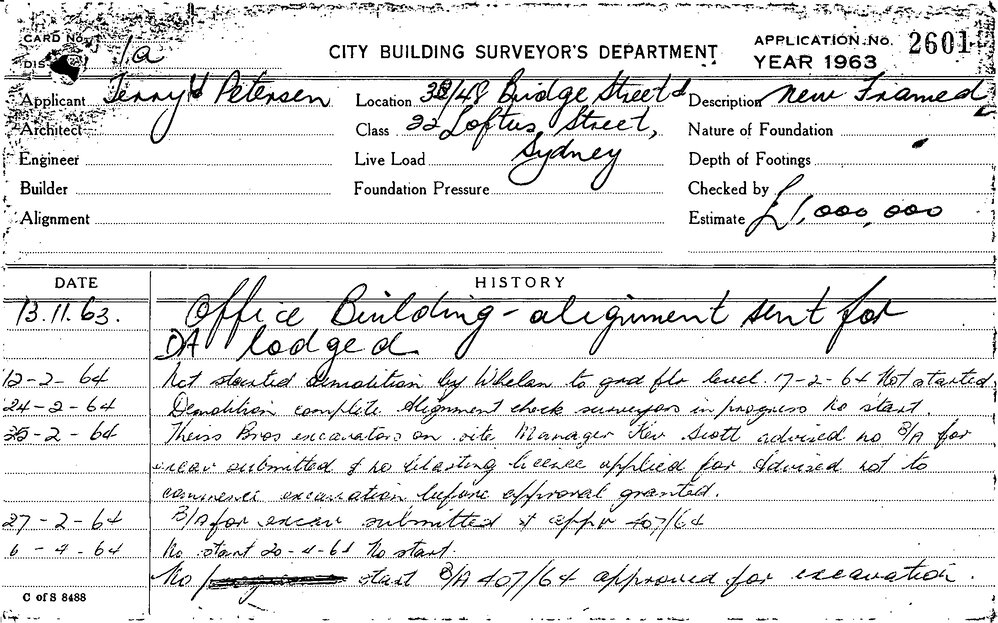 CARD No. 1a
DIS
CITY BUILDING SURVEYOR'S DEPARTMENT
APPLICATION No. 2601
YEAR 1963
Applicant Terry & Petersen
Location 38/48 Bridge Street &
Description New Framed
Architect
Class 22 Loftus Street,
Nature of Foundation
Engineer
Live Load Sydney
Depth of Footings
Builder
Foundation Pressure
Checked by
Alignment
Estimate £1,000,000
DATE HISTORY
13.11.63. Office Building - alignment sent for
DA lodged.
12-2-64 Not started demolition by Whelan to grd flr level. 17-2-64 Not started
24-2-64 Demolition complete Alignment check surveyors in progress No start.
25-2-64 Theiss Bros excavators on site Manager Kev Scott advised no B/A for
excav submitted & no blasting licence applied for Advised not to
commence excavation before approval granted.
27-2-64 B/A for excav submitted & appr 407/64
6-4-64 No start 20-4-64 No start.
No start B/A 407/64 approved for excavation.
C of S 8488